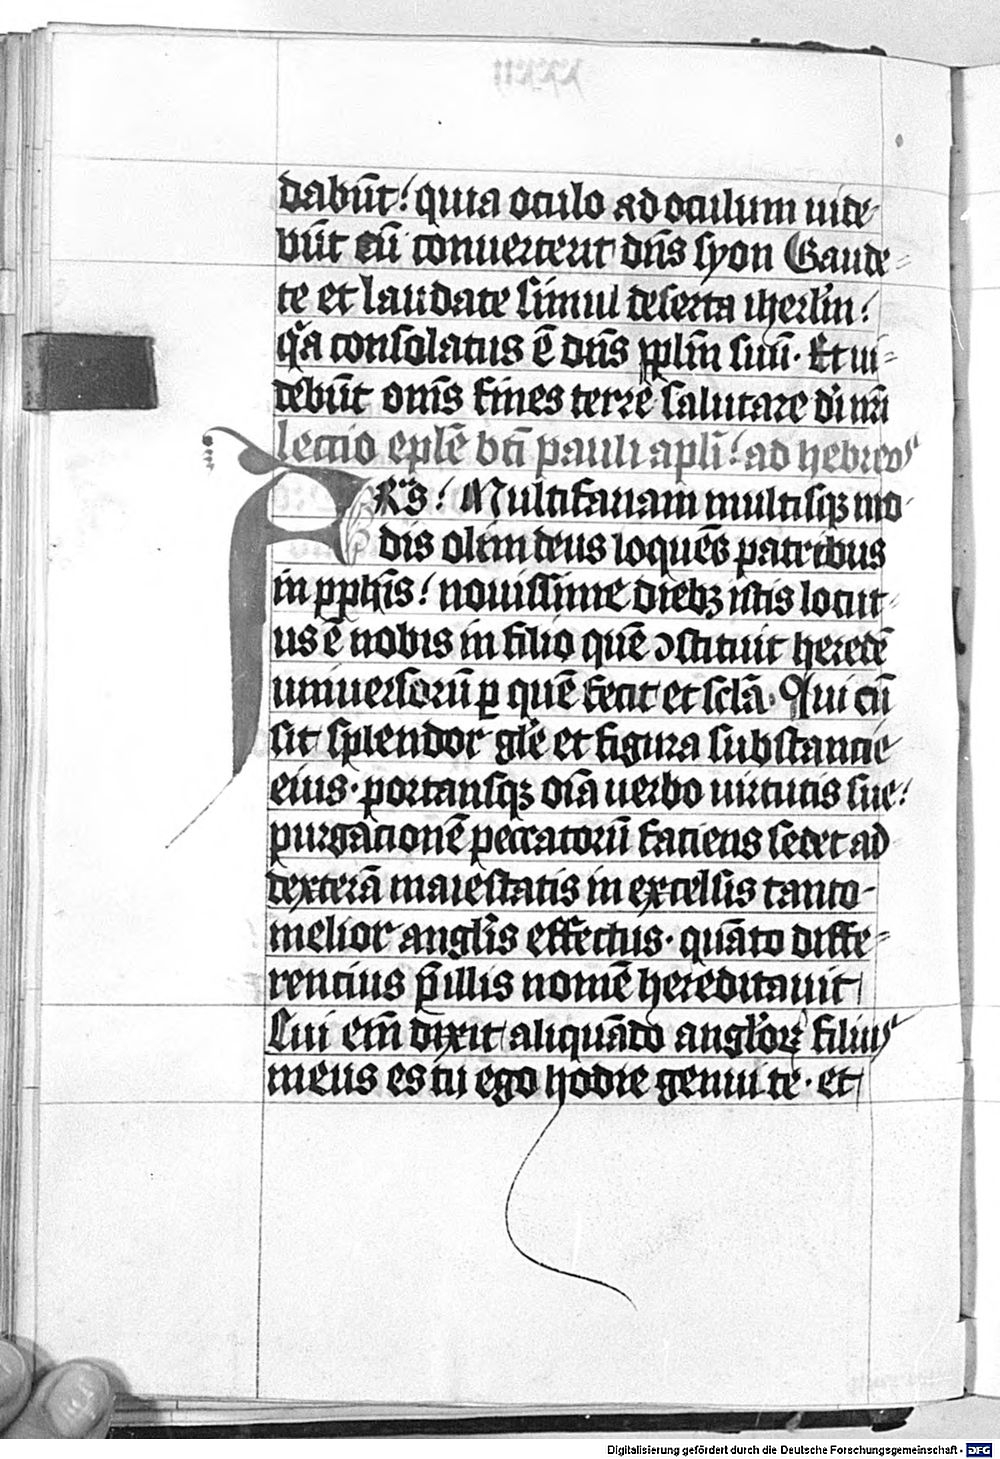 dabūt! quia oculo ad oculum uide
būt cū conuerterit dn̄s syon Gaude-
te et laudate simul deserta iherlm̄!
qͣa consolatus ē dn̄s pplm̄ suū· Et ui-
debūt om̄s fines terre salutare di nr̄i
lectio eplē bt̄i pauli apli! ad hebreos
FRS! Multifariam multisqꝫ mo-
dis olim deus loquēs patribus
in pphīs! nouissime diebꝫ istis locut-
us ē nobis in filio quē ꝯstituit heredē
uniuersorū ꝑ quē fecit et scl̄a· Qui cū
sit splendor gl̄e et figura substancie
eius· portansqꝫ oīa uerbo uirtutis sue!
purgacionē peccatorū faciens sedet ad
dexterā maiestatis in excelsis tanto-
melior angl̄is effectus· quāto diffe-
rentius p̄ illis nomē hereditauit
Cui em̄ dixit aliquādo angl̄oꝝ filius
meus es tu ego hodie genui te· et
Digitalisierung gefördert durch die Deutsche Forschungsgemeinschaft - DFG